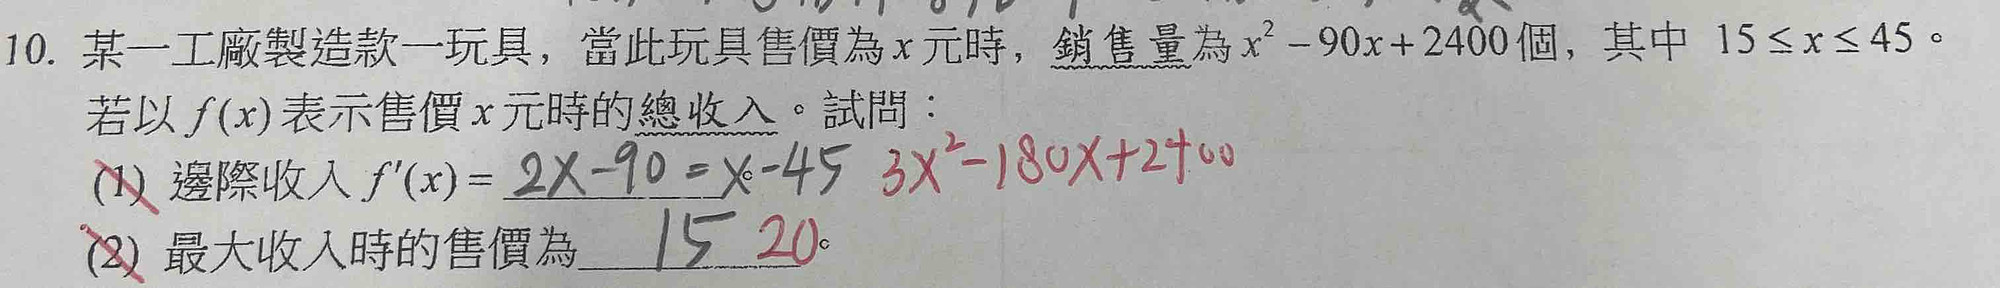 10. 某一工廠製造款一玩具，當此玩具售價為 x 元時，銷售量為 x² − 90x + 2400 個，其中 15 ≤ x ≤ 45。
若以 f(x) 表示售價 x 元時的總收入。試問：
(1) 邊際收入 f′(x) = 2x-90 = x-45。 3x²-180x+2400
(2) 最大收入時的售價為 15 20。